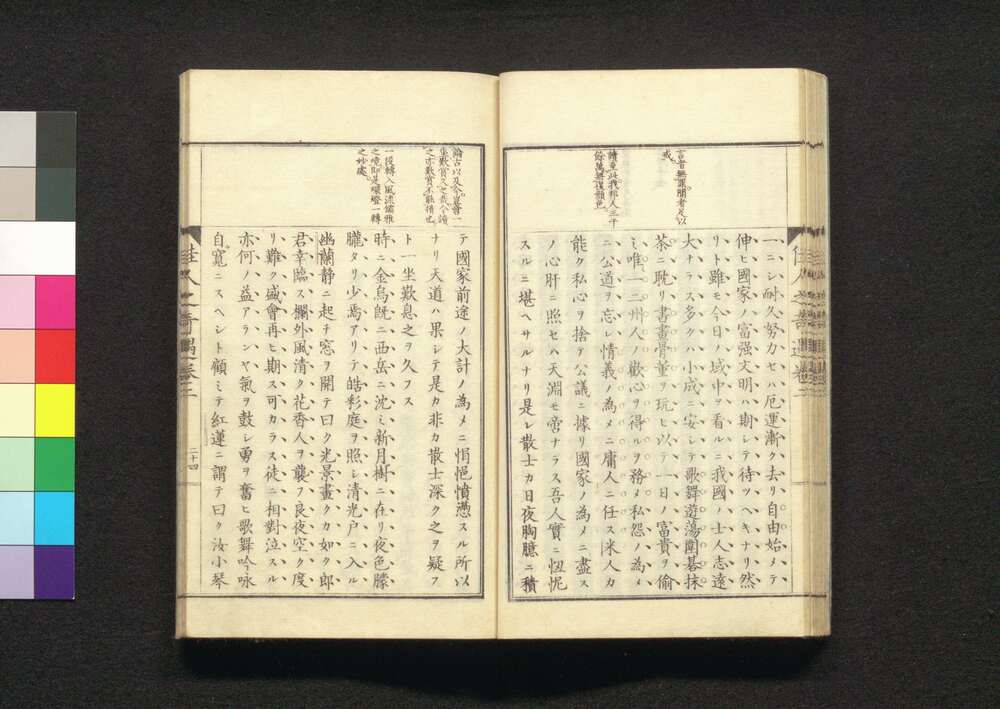 言者無罪聞者足以
戒
讀至此我邦人三千
餘萬無復顏色
一ニシ耐久努力セハ厄運漸ク去リ自由始メテ
伸ヒ國家ノ富强文明ハ期シテ待ツヘキナリ然
リト雖モ今日ノ域中ヲ看ルニ我國ハ士人志遠
大ナラス多クハ小成ニ安シテ歌舞遊蕩圍碁抹
茶ニ耽リ書畫骨董ヲ玩ヒ以テ一日ノ富貴ヲ偷
ミ唯一二州人ノ歡心ヲ得ルヲ務メ私怨ノ為メ
ニ公道ヲ忘レ情義ノ為メニ庸人ニ任ス米人カ
能ク私心ヲ捨テ公議ニ據リ國家ノ為メニ盡ス
ノ心肝ニ照セハ天淵モ啻ナラス吾人實ニ忸怩
スルニ堪ヘサルナリ是レ散士カ日夜胸臆ニ積
佳人之奇遇卷二
論古以及今豈會一
坐歎賞久之哉今讀
之亦歎賞不能措也
一段轉入風流儒雅
之境即是螺螢一轉
之妙處
テ國家前途ノ大計ノ為メニ悁悒憤懣スル所以
ナリ天道ハ果シテ是カ非カ散士深ク之ヲ疑フ
ト一坐歎息之ヲ久フス
時ニ金烏旣ニ西岳ニ沈ミ新月樹ニ在リ夜色朦
朧タリ少焉アリテ皓彩庭ヲ照シ清光戸ニ入ル
幽蘭静ニ起チ窓ヲ開テ曰ク光景畫クカ如シ郎
君幸臨ス欄外風清ク花香人ヲ襲フ良夜空ク度
リ難ク盛會再ヒ期ス可カラス徒ニ相對泣スル
亦何ノ益アランヤ氣ヲ鼓シ勇ヲ奮ヒ歌舞吟詠
自寬ニスヘシト顧ミテ紅蓮ニ謂テ曰ク汝小琴
佳人之奇遇卷二
二十四